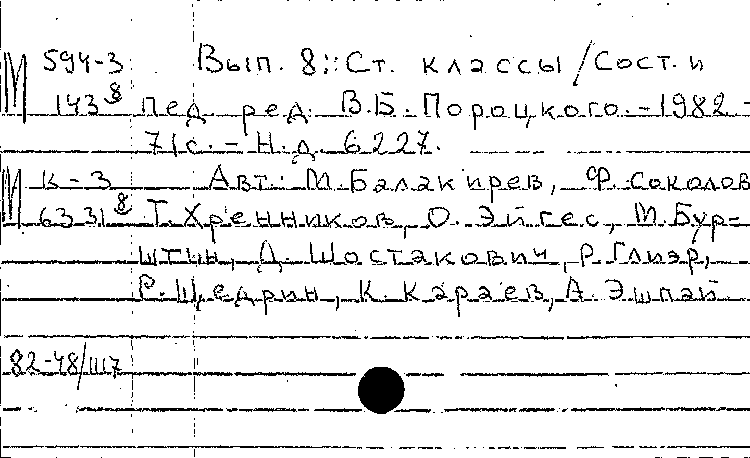 М 594-3 Вып. 8: Ст. классы / Сост. и
143 8 пед. ред. В.Б. Пороцкого. - 1982 -
71с. - Н.д. 6227.
М К-3 Авт.: М. Балакирев, Ф. Соколов
6331 8 Т. Хренников, О. Эйгес, М. Бур-
штин, Д. Шостакович, Р. Глиэр,
Р. Щедрин, К. Караев, А. Эшпай
82-48/1117